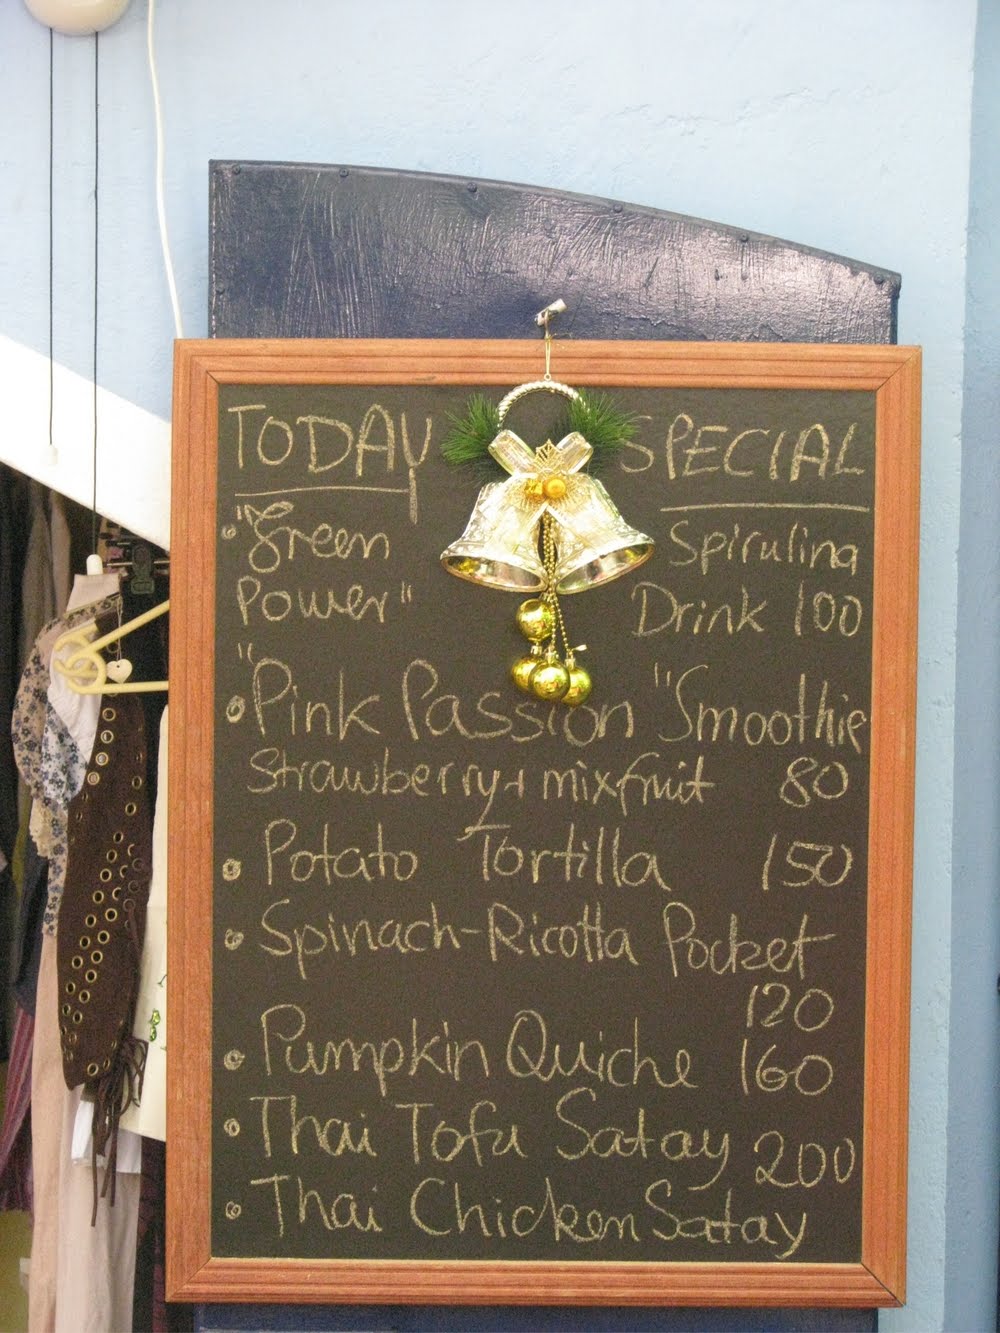 TODAY SPECIAL
"Green Spirulina
Power" Drink 100
"Pink Passion "Smoothie
Strawberry + mixfruit 80
Potato Tortilla 150
Spinach-Ricotta Pocket
120
Pumpkin Quiche 160
Thai Tofu Satay 200
Thai Chicken Satay